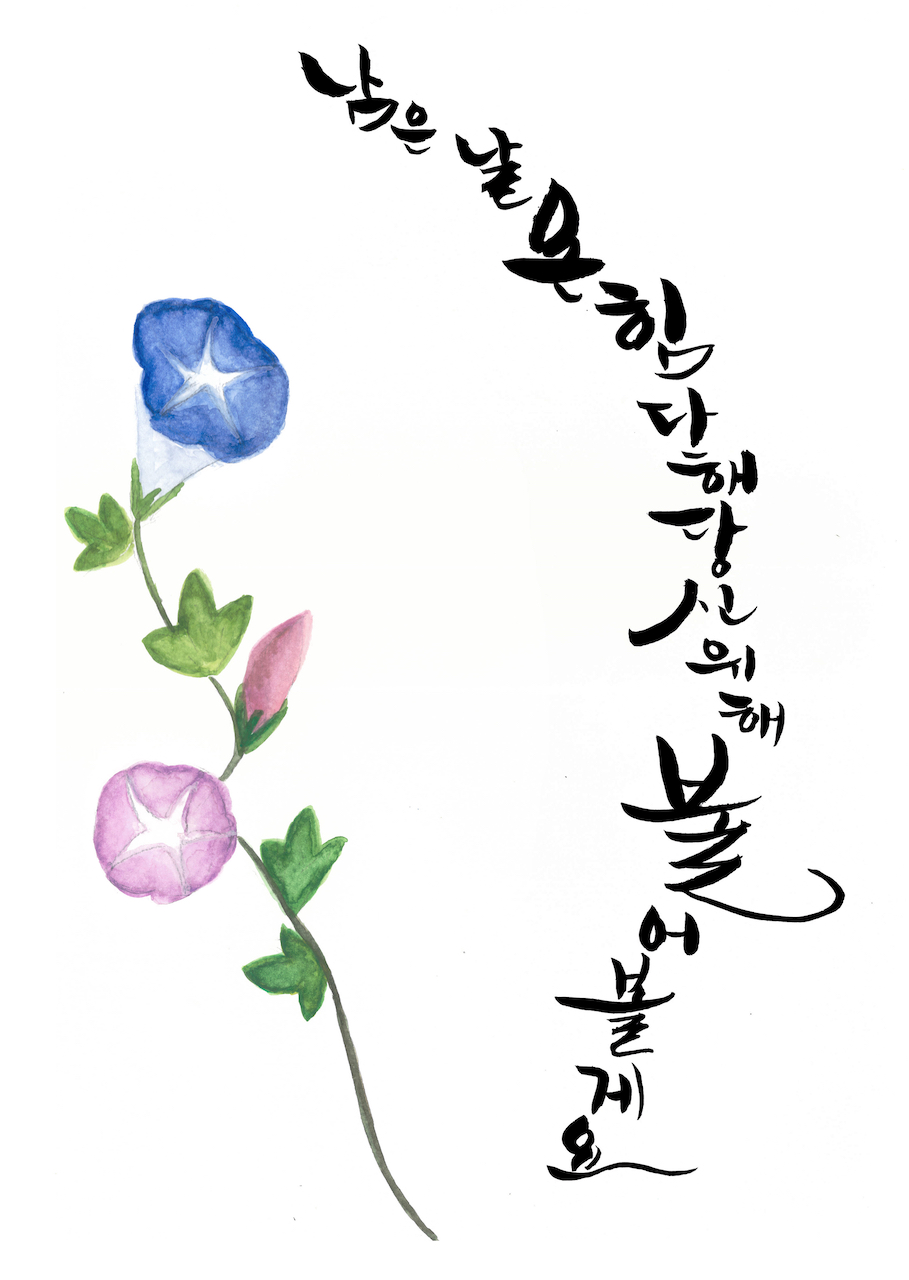 남은 날 온 힘 다해 당신 위해 불어 볼게요